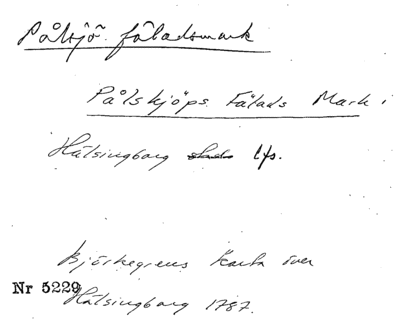 Pålsjö fäladsmark
Pålskjöps Fälads Mark i
Hälsingborg lfs.
Björkegrens Karta över
Nr 5229
Hälsingborg 1787.